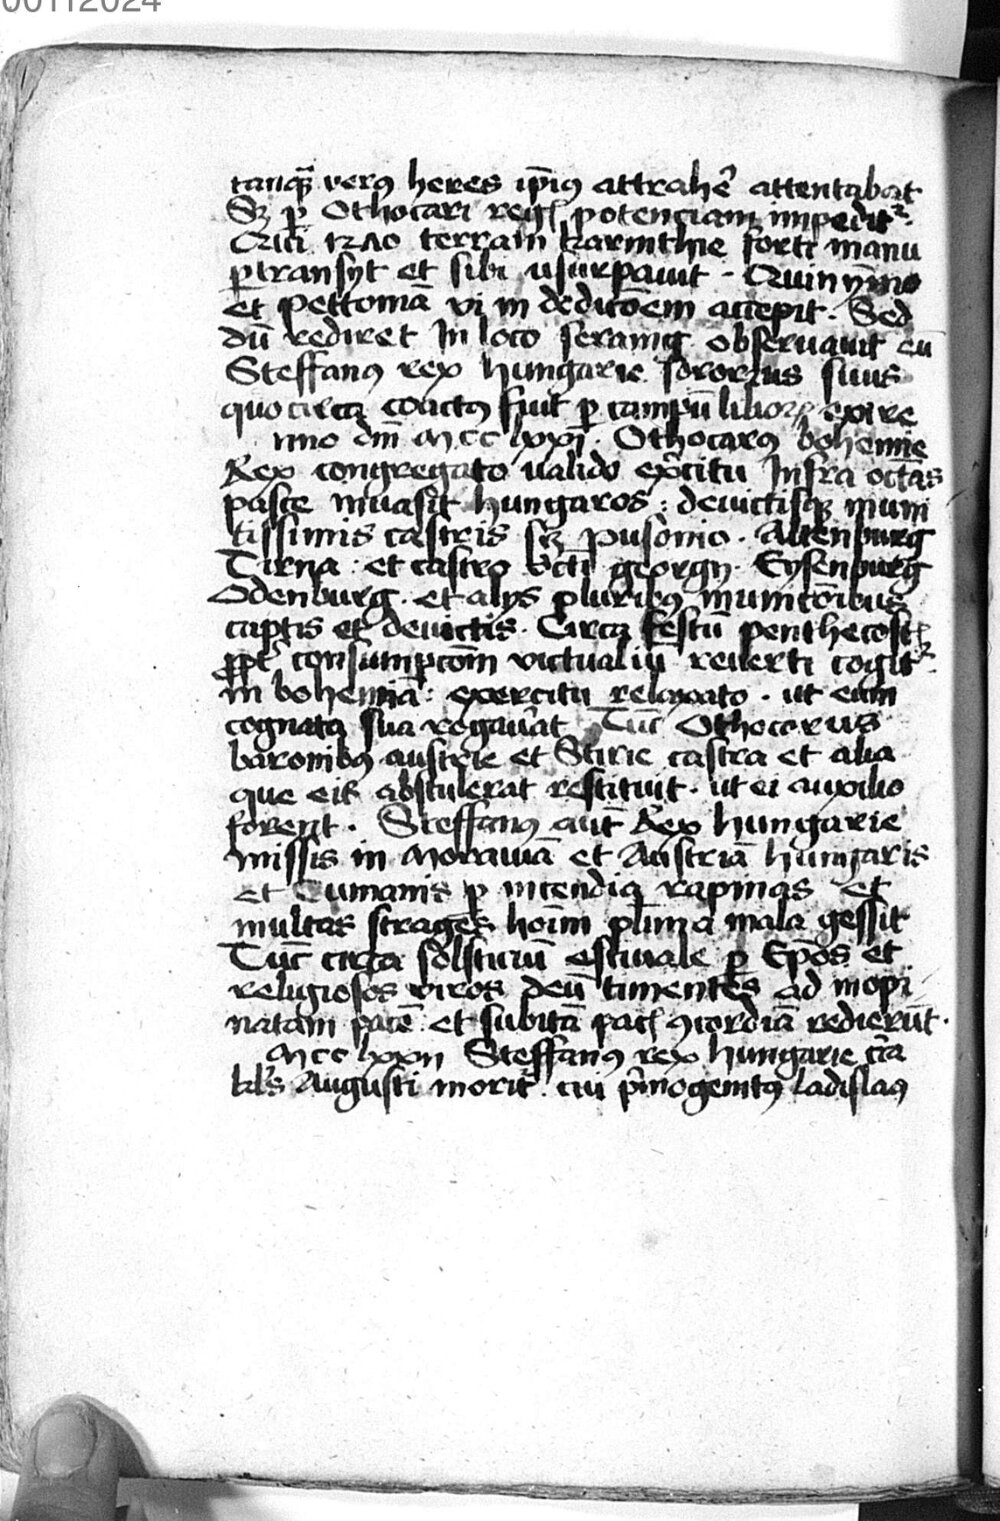 00112024
tanq̄ȝ verꝯ heres ip̄iꝯ attraher̄ attentabat
Sȝ ꝑ Othocari regꝭ potenciam impeditᷣ.
Qui 1270 terram karinthie forti manu
ꝑtransyt et sibi usurpauit . Quin ymo
et pettomā vi in dedicōem accepit. Sed
dū rediret In loco seranig obseruauit eū
Steffanꝯ rex hungarie sororius suus
quocirca coactꝯ fuit ꝑ campū exire
nno dm̄ Mcc lxxi. Othocarꝯ bohemie
Rex congregato ualido exc̄itu Infra octās
pasce inuasit hungaros : deuictisqȝ muni
tissimis castris sȝ pusonio . Altenburg
Tirna . et castro sc̄ti georgy . Eysenburg
Odenburg . et alys pluribꝯ municōibus
captis et deuictis . Circa festū penthecostꝭ
ꝓpt̄ consumpcōm victualiū reuerti cogitᷣ .
in bohemiā : exercitu relaxato . ut eum
cognata sua rogau̅at Tūc Othocorus
baronibꝯ austrie et Stirie castra et alia
que eis abstulerat restituit . ut ei auxilio
forent . Steffanꝯ aut̄ Rex hungarie
missis in Morauiā et Austriā hungaris
et Cumanis ꝑ incendia rapinas et
multas strages hoīm plīma mala gessit
Tūc circa solsticiū estiuale ꝑ Ep̄os et
religiosos viros deū timentes ad inopi
natam pacē et subitā pacꝭ ꝯcordiā redierūt .
Mcc lxxii Steffanꝯ rex hungarie cīra
kl̄s Augusti morit̄ . cui p̄mogenitꝯ ladislaꝯ